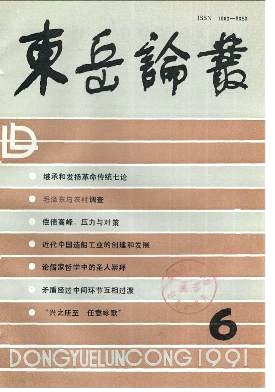 東岳論叢
继承和发扬革命传统七论
毛泽东与农村调查
偿债高峰、压力与对策
近代中国造船工业的创建和发展
论儒家哲学中的圣人崇拜
矛盾经过中间环节互相过渡
“兴之所至 任意咏歌”
6
DONGYUELUNCONG 1991